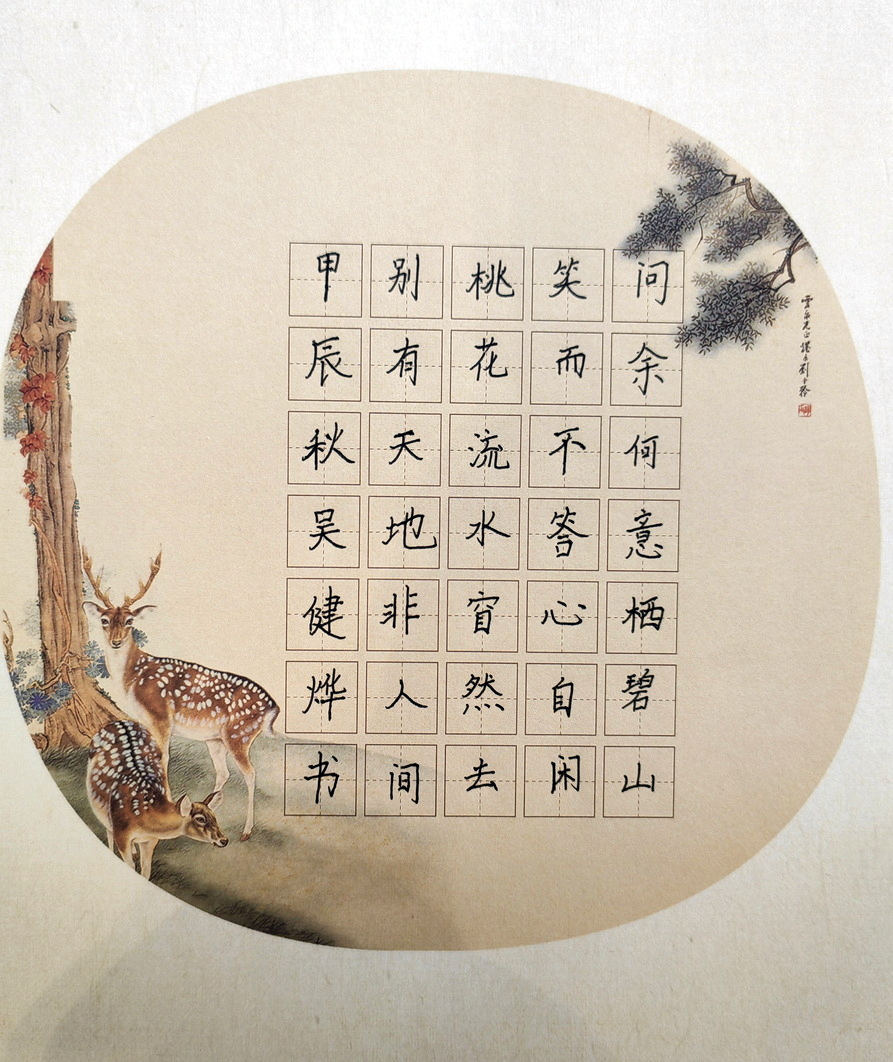 问余何意栖碧山
笑而不答心自闲
桃花流水窅然去
别有天地非人间
甲辰秋吴健烨书